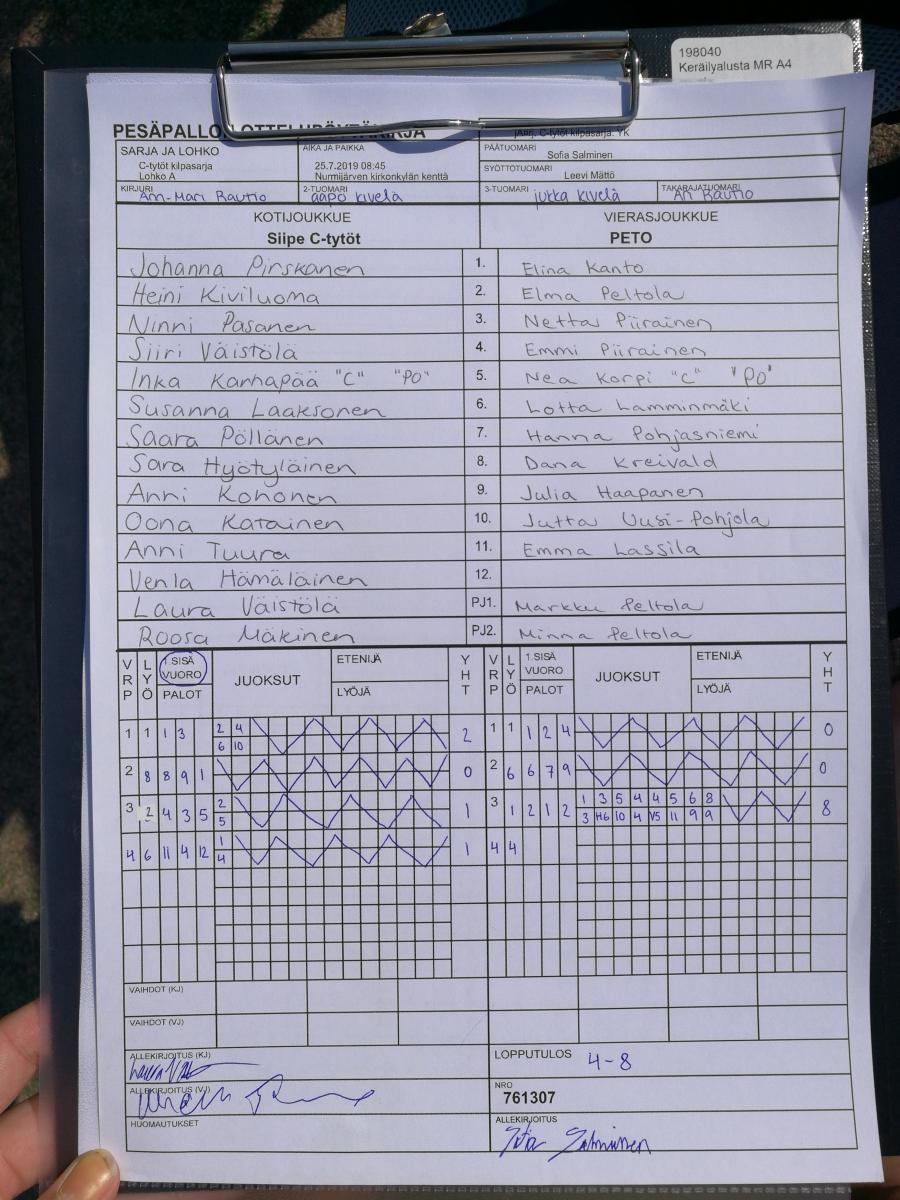 198040
Keräilyalusta MR A4
PESÄPALLO
C-tytöt kilpasarja. YK
SARJA JA LOHKO
C-tytöt kilpasarja
Lohko A
AIKA JA PAIKKA
25.7.2019 08:45
Nurmijärven kirkonkylän kenttä
PÄÄTUOMARI
Sofia Salminen
SYÖTTÖTUOMARI
Leevi Mättö
KIRJURI
Ann-Mari Rautio
2-TUOMARI
aapo kivelä
3-TUOMARI
jukka kivelä
TAKARAJATUOMARI
Ari Rautio
KOTIJOUKKUE
Siipe C-tytöt
VIERASJOUKKUE
PETO
Johanna Pirskanen 1. Elina Kanto
Heini Kiviluoma 2. Elma Peltola
Ninni Pasanen 3. Netta Piirainen
Siiri Väistölä 4. Emmi Piirainen
Inka Karhapää "C" "PO" 5. Nea Korpi "C" "PO"
Susanna Laaksonen 6. Lotta Lamminmäki
Saara Pöllänen 7. Hanna Pohjasniemi
Sara Hyötyläinen 8. Dana Kreivald
Anni Kononen 9. Julia Haapanen
Oona Katainen 10. Jutta Uusi-Pohjola
Anni Tuura 11. Emma Lassila
Venla Hämäläinen 12.
Laura Väistölä PJ1. Markku Peltola
Roosa Mäkinen PJ2. Minna Peltola
VRP LYÖ 1.SISÄ VUORO PALOT JUOKSUT ETENIJÄ LYÖJÄ YHT VRP LYÖ 1.SISÄ VUORO PALOT JUOKSUT ETENIJÄ LYÖJÄ YHT
1 1 1 3 2 4 2 1 1 1 2 4 0
6 10
2 8 8 9 1 0 2 6 6 7 9 0
3 2 4 3 5 2 1 3 1 2 1 2 1 3 5 4 4 5 6 8 8
5 3 H6 10 4 V5 11 9 9
4 6 11 4 12 1 1 4 4
4
VAIHDOT (KJ)
VAIHDOT (VJ)
ALLEKIRJOITUS (KJ)
LOPPUTULOS 4-8
ALLEKIRJOITUS (VJ)
NRO
761307
HUOMAUTUKSET
ALLEKIRJOITUS